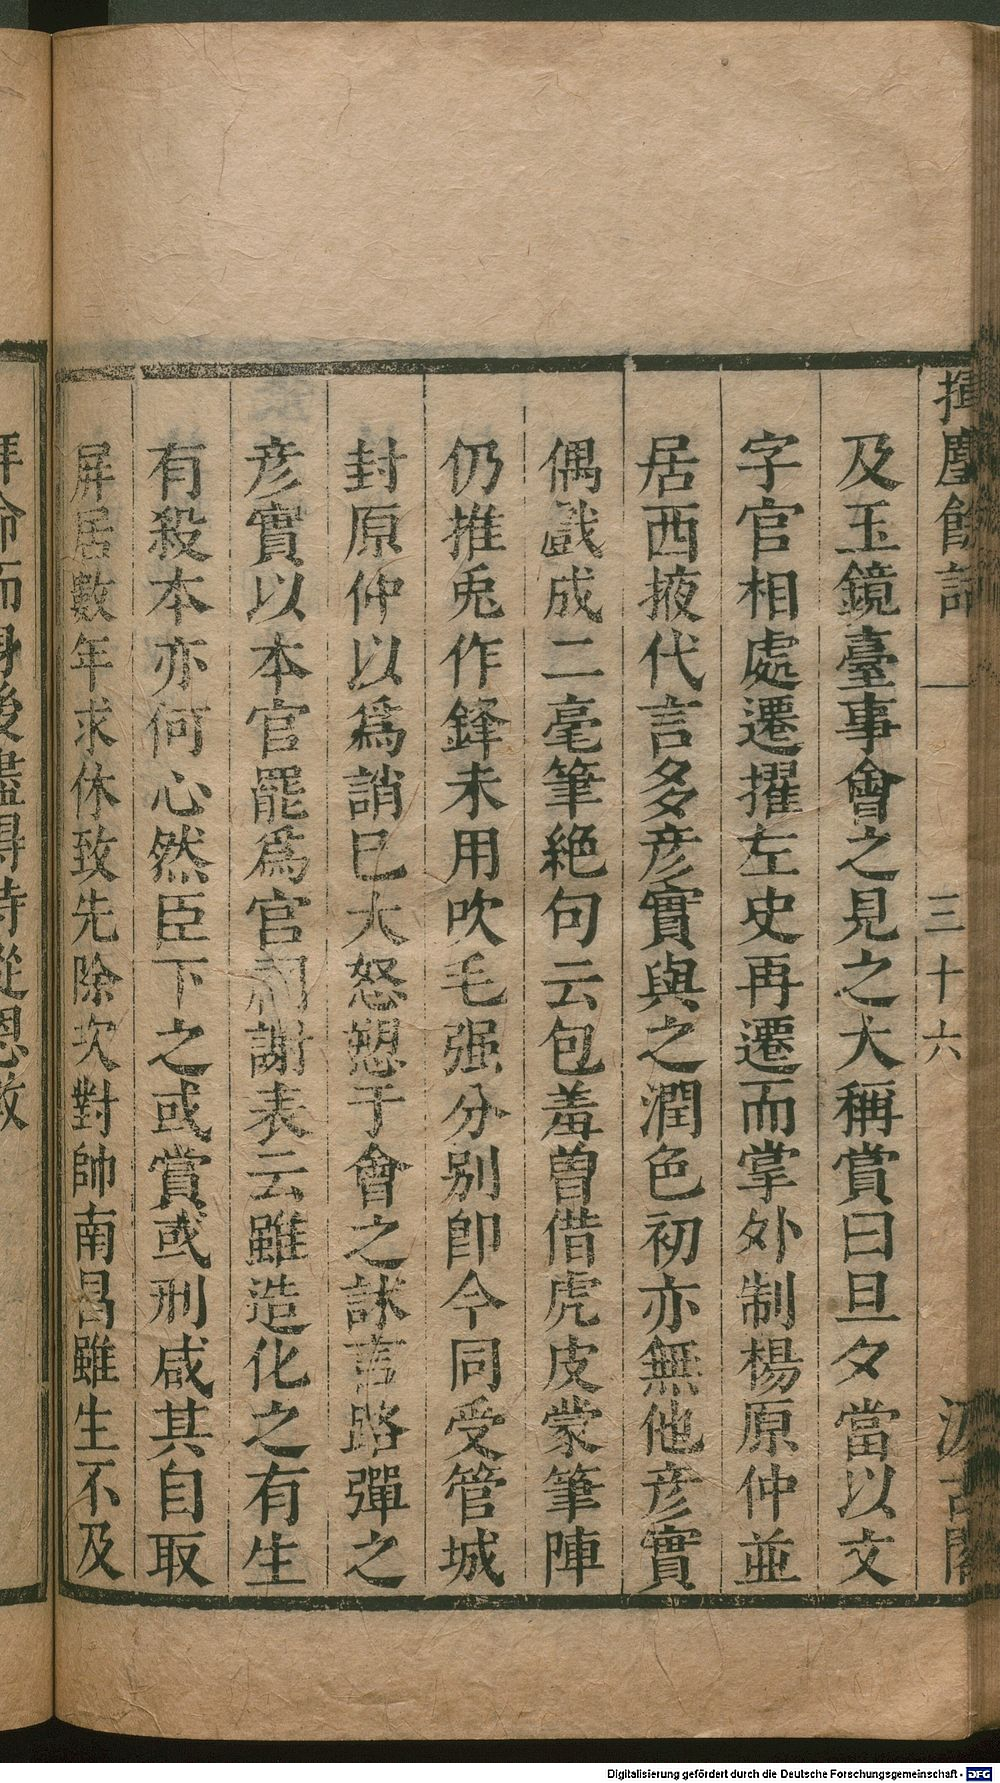 揮麈餘話 一 三十六 汲古閣
及玉鏡臺事會之見之大稱賞曰旦夕當以文
字官相處遷擢左史再遷而掌外制楊原仲並
居西掖代言多彦實與之潤色初亦無他彦實
偶戲成二毫筆絕句云包羞曽借虎皮蒙筆陣
仍推兎作鋒未用吹毛强分别卽今同受管城
封原仲以爲誚已大怒愬于會之訹言路彈之
彦實以本官罷爲官祠謝表云雖造化之有生
有殺本亦何心然臣下之或賞或刑咸其自取
屏居數年求休致先除次對帥南昌雖生不及
拜命而身後盡得侍從恩数
Digitalisierung gefördert durch die Deutsche Forschungsgemeinschaft - DFG